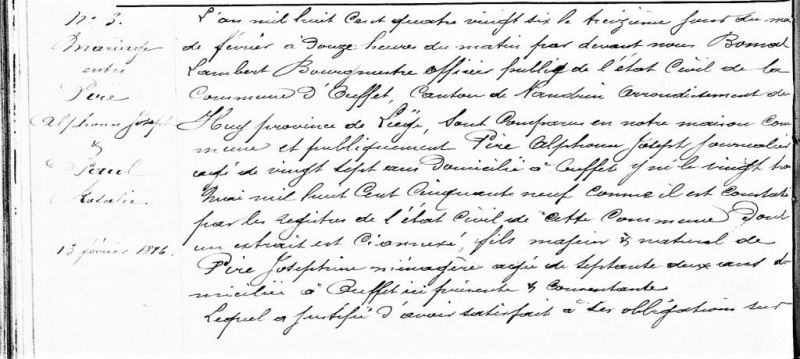 N° 3.
Mariage
entre
Pire
Alphonse Joseph
&
Paul
Rosalie
13 février 1886.
L'an mil huit cent quatre vingt six le treizième jour du moi
de février à douze heures du matin par devant nous
Lambert Bourgmestre officier public de l'état Civil de la
Commune d'Ouffet, Canton de Nandrin arrondissement de
Huy province de Liège, sont comparus en notre maison com
mune et publiquement Pire Alphonse Joseph journalier
agé de vingt sept ans Domicilié à Ouffet y né le vingt
mai mil huit Cent Cinquante neuf comme il est constaté
par les registres de l'état Civil de cette Commune Dont
un extrait est ci annexé, fils majeur & naturel de
Pire Joséphine ménagère agée de septante deux ans do
miciliée à Ouffet ici présente & Consentante
Lequel a justifié d'avoir satisfait à ses obligations sur